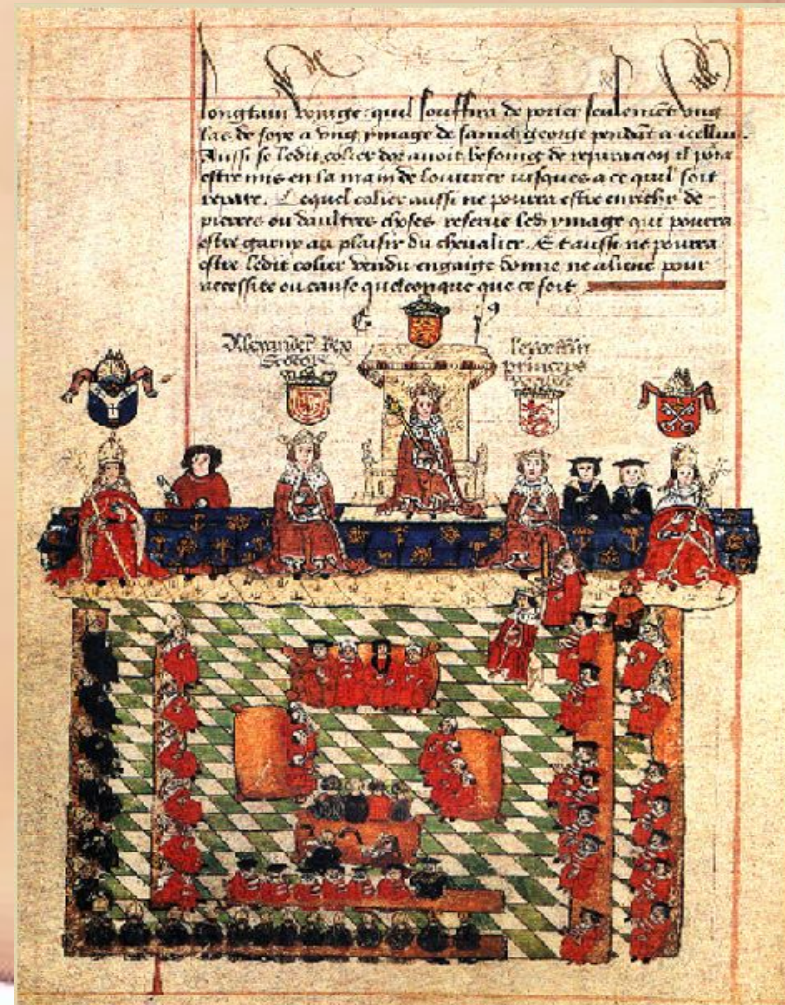 longtain voyage : quil souffira de porter seulement vng
las de soye a vng ymage de sainct george pendāt a icelluy.
Aussi se ledit colier dor auoit besoing de reparacion il pora
estre mis en la main de louurier iusques a ce quil soit
repare. Lequel colier aussi ne pourra estre enrichy de -
pierres ou daultres choses reserue led. ymage qui pourra
estre garny au plaisir du cheualier. Et aussi ne pourra
estre ledit colier vendu engaige donne ne aliene pour
necessite ou cause quelconque que ce soit
Alexander Rex
Scotie
princeps